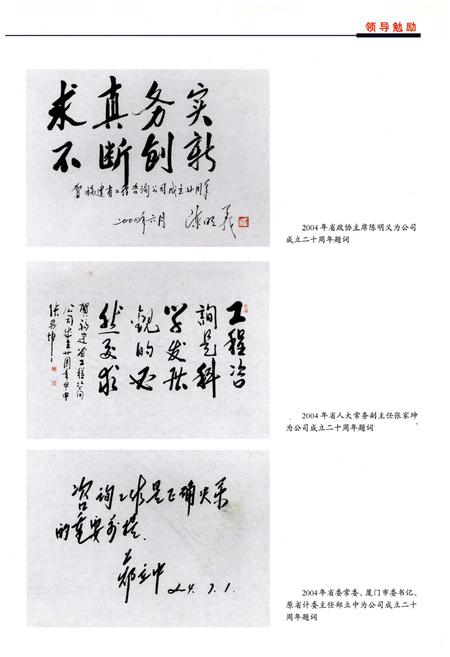 领导勉励
求真务实
不断创新
贺福建省工程咨询公司成立廿周年
二〇〇四年六月 陈明义
2004年省政协主席陈明义为公司
成立二十周年题词
工程咨
詢是科
学发展
觀的必
然要求
贺福建省工程咨询
公司成立廿周年甲申
张家坤
2004年省人大常务副主任张家坤
为公司成立二十周年题词
咨询工作是正确决策
的重要前提
郑立中
2004.7.1.
2004年省委常委、厦门市委书记、
原省计委主任郑立中为公司成立二十
周年题词